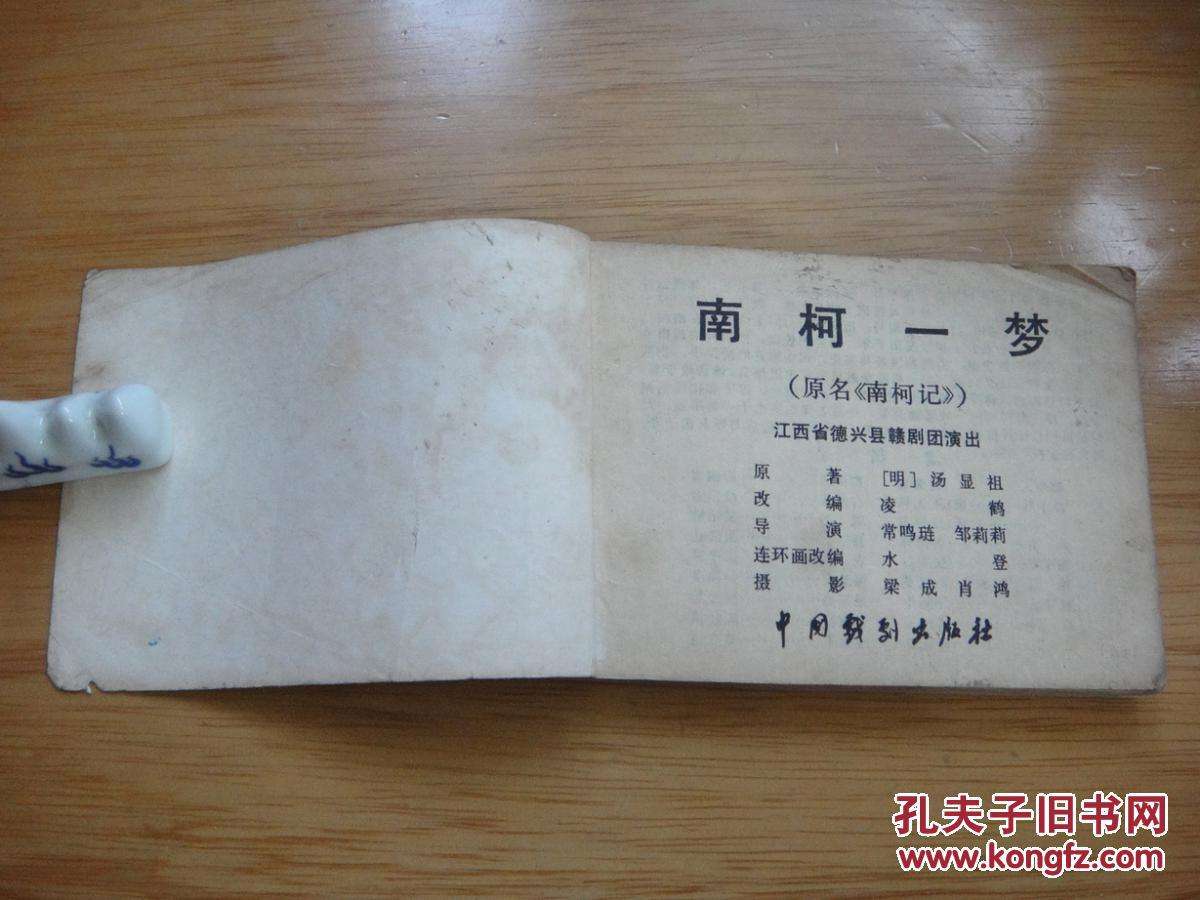 南柯一梦
（原名《南柯记》）
江西省德兴县赣剧团演出
原著 [明] 汤显祖
改编 凌鹤
导演 常鸣琏 邹莉莉
连环画改编 水登
摄影 梁成 肖鸿
中国戏剧出版社
孔夫子旧书网
www.kongfz.com